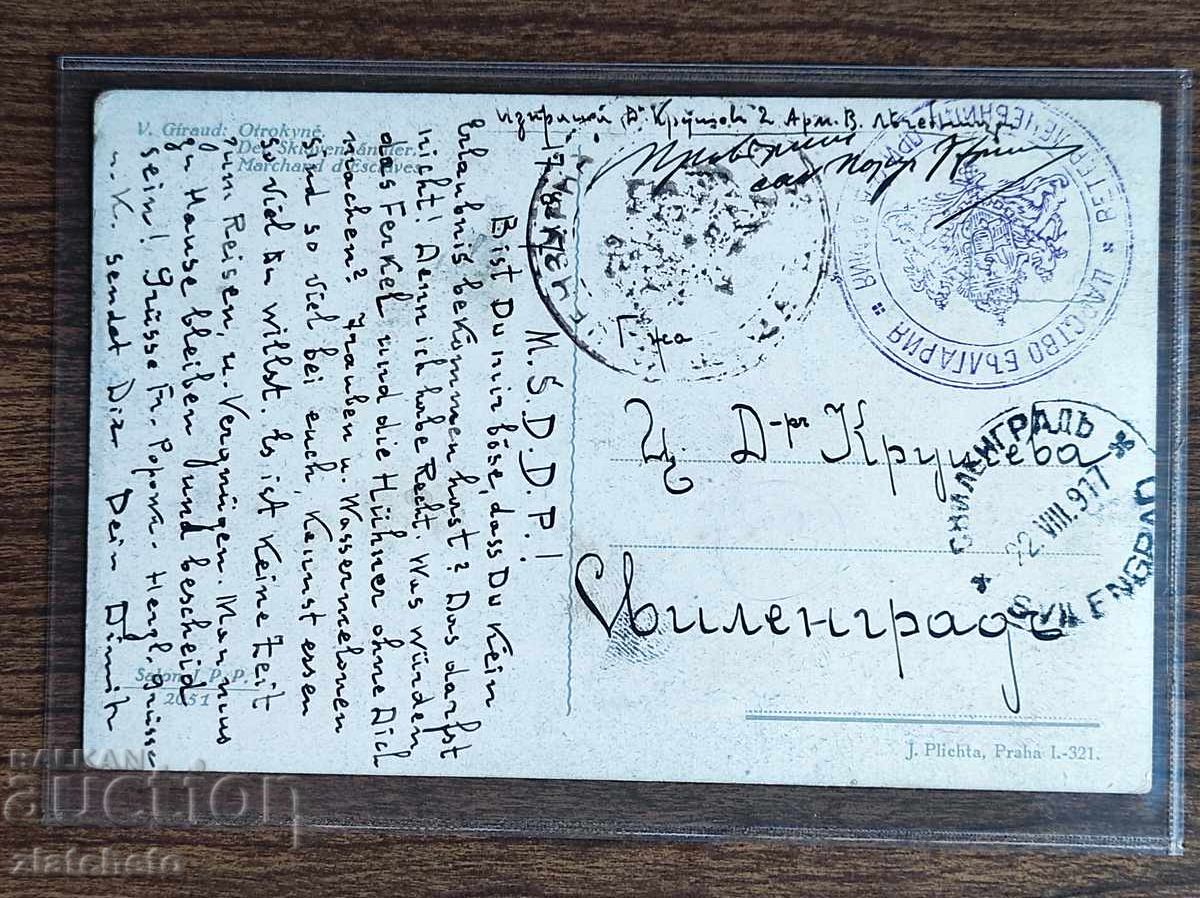 V. Giraud: Otrokyně.
Der Sklavenhändler.
Marchand d'Esclaves.
17.8.
M. S. D. D. P.!
Bist Du mir böse, dass Du kein
Erlaubnis bekommen hast? Das darfst
nicht! Denn ich habe Recht. Was würden
das Ferkel und die Hühner ohne Dich
machen? Trauben u. Wassermelonen
sind so viel bei euch, kannst essen
so viel Du willst. Es ist keine Zeit
zum Reisen, u. Vergnügen. Man muss
zu Hause bleiben und bescheid
sein! Grüsse Fr. Popowa. Herzl. grüsse
u. K. sendet Dir Dein Dimitr
Salon J. P. P.
2051
2 Арм. В.
ЦАРСТВО БЪЛГАРИЯ
Г-жа
Ц Д-ръ Крушева
Свиленградъ
СВИЛЕНГРАДЪ
22.VIII.917
SVILENGRAD
J. Plichta, Praha I.-321.
BALKAN
auction
zlatcheto